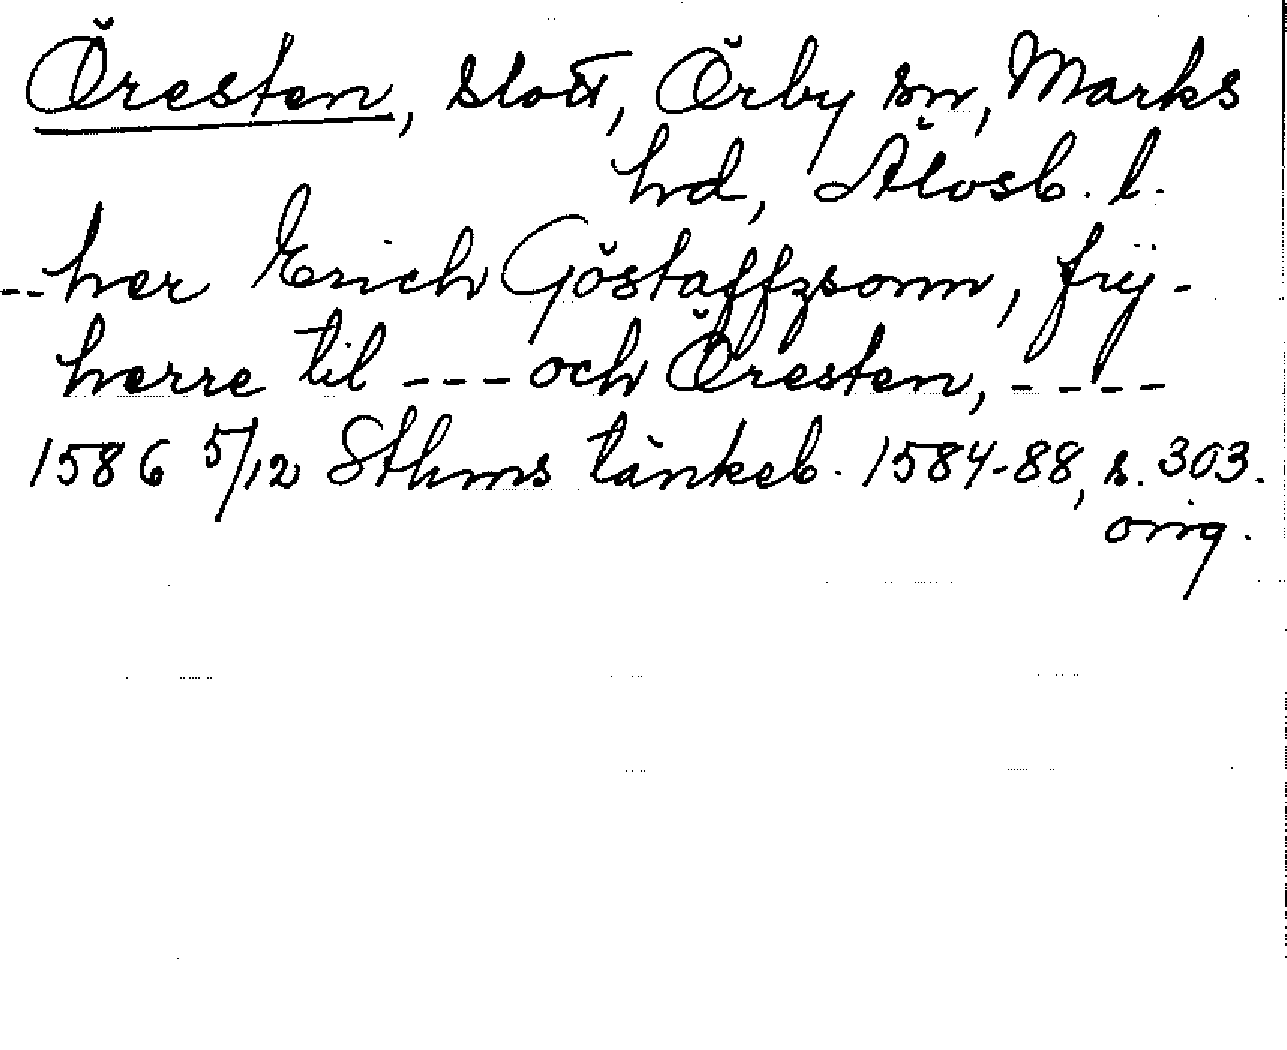 Öresten, slott, Örby sn, Marks
hd, Älvsb. l.
-- her Erich Göstaffzsonn, frij-
herre til --- och Öresten, ----
1586 5/12 Sthms tänkeb. 1584-88, s. 303.
orig.